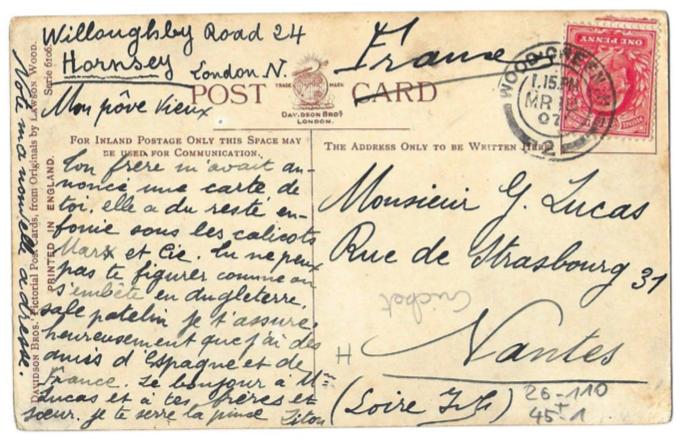 Willoughby Road 24
Hornsey London N.
France
POST CARD
TRADE MARK
DAVIDSON BROS
LONDON.
Mon pôve Vieux
FOR INLAND POSTAGE ONLY THIS SPACE MAY
BE USED FOR COMMUNICATION.
Ton frère m'avait an-
noncé une carte de
toi, elle a du resté en-
fouie sous les calicots
Marx et Cie. Tu ne peux
pas te figurer comme on
s'embête en Angleterre,
sale patelin je t'assure,
heureusement que j'ai des
amis d'Espagne et de
France. Le bonjour à Mme
Lucas et à tes frères et
sœur. je te serre la pince
Note ma nouvelle adresse.
DAVIDSON BROS.' Pictorial Post Cards, from Originals by LAWSON WOOD. Serie 6106.
PRINTED IN ENGLAND.
THE ADDRESS ONLY TO BE WRITTEN HERE
Monsieur G. Lucas
Rue de Strasbourg 31
Nantes
(Loire Inf)
WOOD GREEN
1.15 PM
MR 12
07
2
ONE PENNY
Cricket
H
26-110
+
45-1